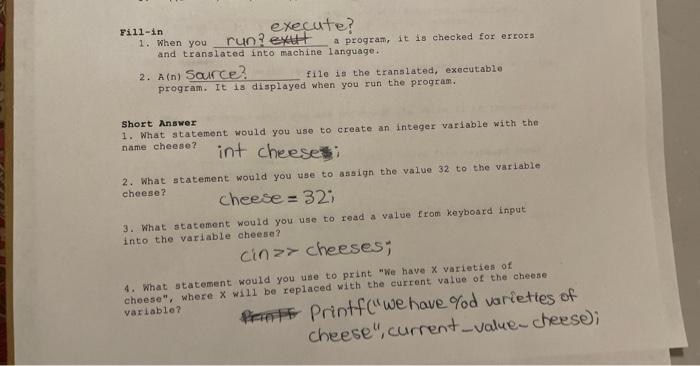 Fill-in
execute?
1. When you run? a program, it is checked for errors
and translated into machine language.
2. A(n) Source? file is the translated, executable
program. It is displayed when you run the program.
Short Answer
1. What statement would you use to create an integer variable with the
name cheese? int cheese;
2. What statement would you use to assign the value 32 to the variable
cheese?
cheese = 32;
3. What statement would you use to read a value from keyboard input
into the variable cheese?
cin >> cheeses;
4. What statement would you use to print "We have X varieties of
cheese", where X will be replaced with the current value of the cheese
variable?
Printf("we have %d varieties of
cheese", current_value_cheese);